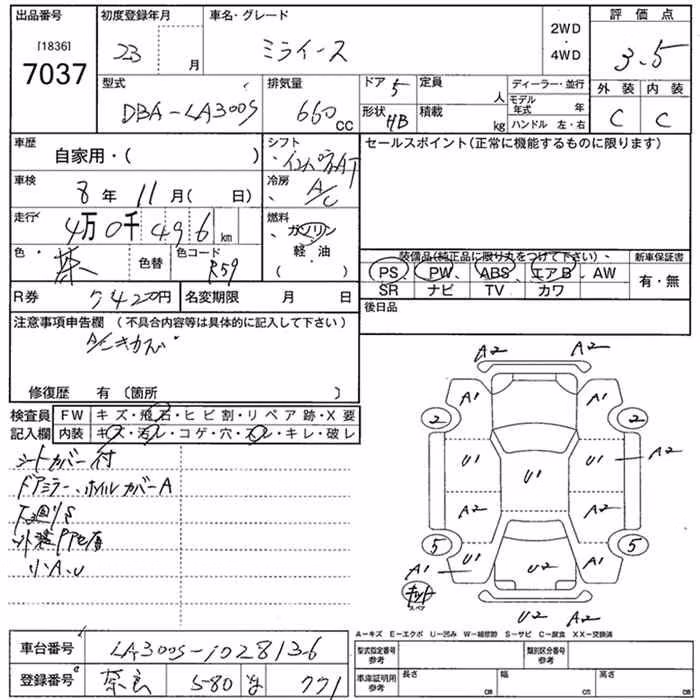 出品番号 初度登録年月 車名・グレード 評価点
[1836]
7037
23 月
ミライース
2WD
・
4WD
3.5
型式 排気量 ドア 5 定員 人 ディーラー・並行 外装 内装
DBA-LA300S 660cc
形状 HB 積載 kg
モデル年式 年
ハンドル 左・右
C C
車歴 自家用・( )
シフト
インパネAT
セールスポイント(正常に機能するものに限ります)
車検 8年 11月( 日)
冷房 A/C
走行 4万0千496km
燃料
ガソリン
軽油
( )
色 茶 色替 色コード R59
装備品(純正品に限り丸をつけて下さい) 新車保証書
PS、PW、ABS、エアB、AW
SR ナビ TV カワ
有・無
R券 7420円 名変期限 月 日
後日品
注意事項申告欄 (不具合内容等は具体的に記入して下さい)
修復歴 有(箇所 )
検査員 FW キズ・飛石・ヒビ割・リペア跡・X要
記入欄 内装 キズ・汚レ・コゲ・穴・スレ・キレ・破レ
シートカバー付
ドアミラー、ホイルカバーA
下廻りS
小A、U
A2 A2
A1 A1
2 2
U1 U1 U1 A2
A2 A2
5 5
A1 U1 U2 A1
キット
スペア
U2 A2
A-キズ E-エクボ U-凹み W-補修跡 S-サビ C-腐食 XX-交換済
車台番号 LA300S-1028136
型式指定番号 参考 類別区分番号 参考
登録番号 奈良 580 771
車庫証明用 参考 長さ cm 幅 cm 高さ cm